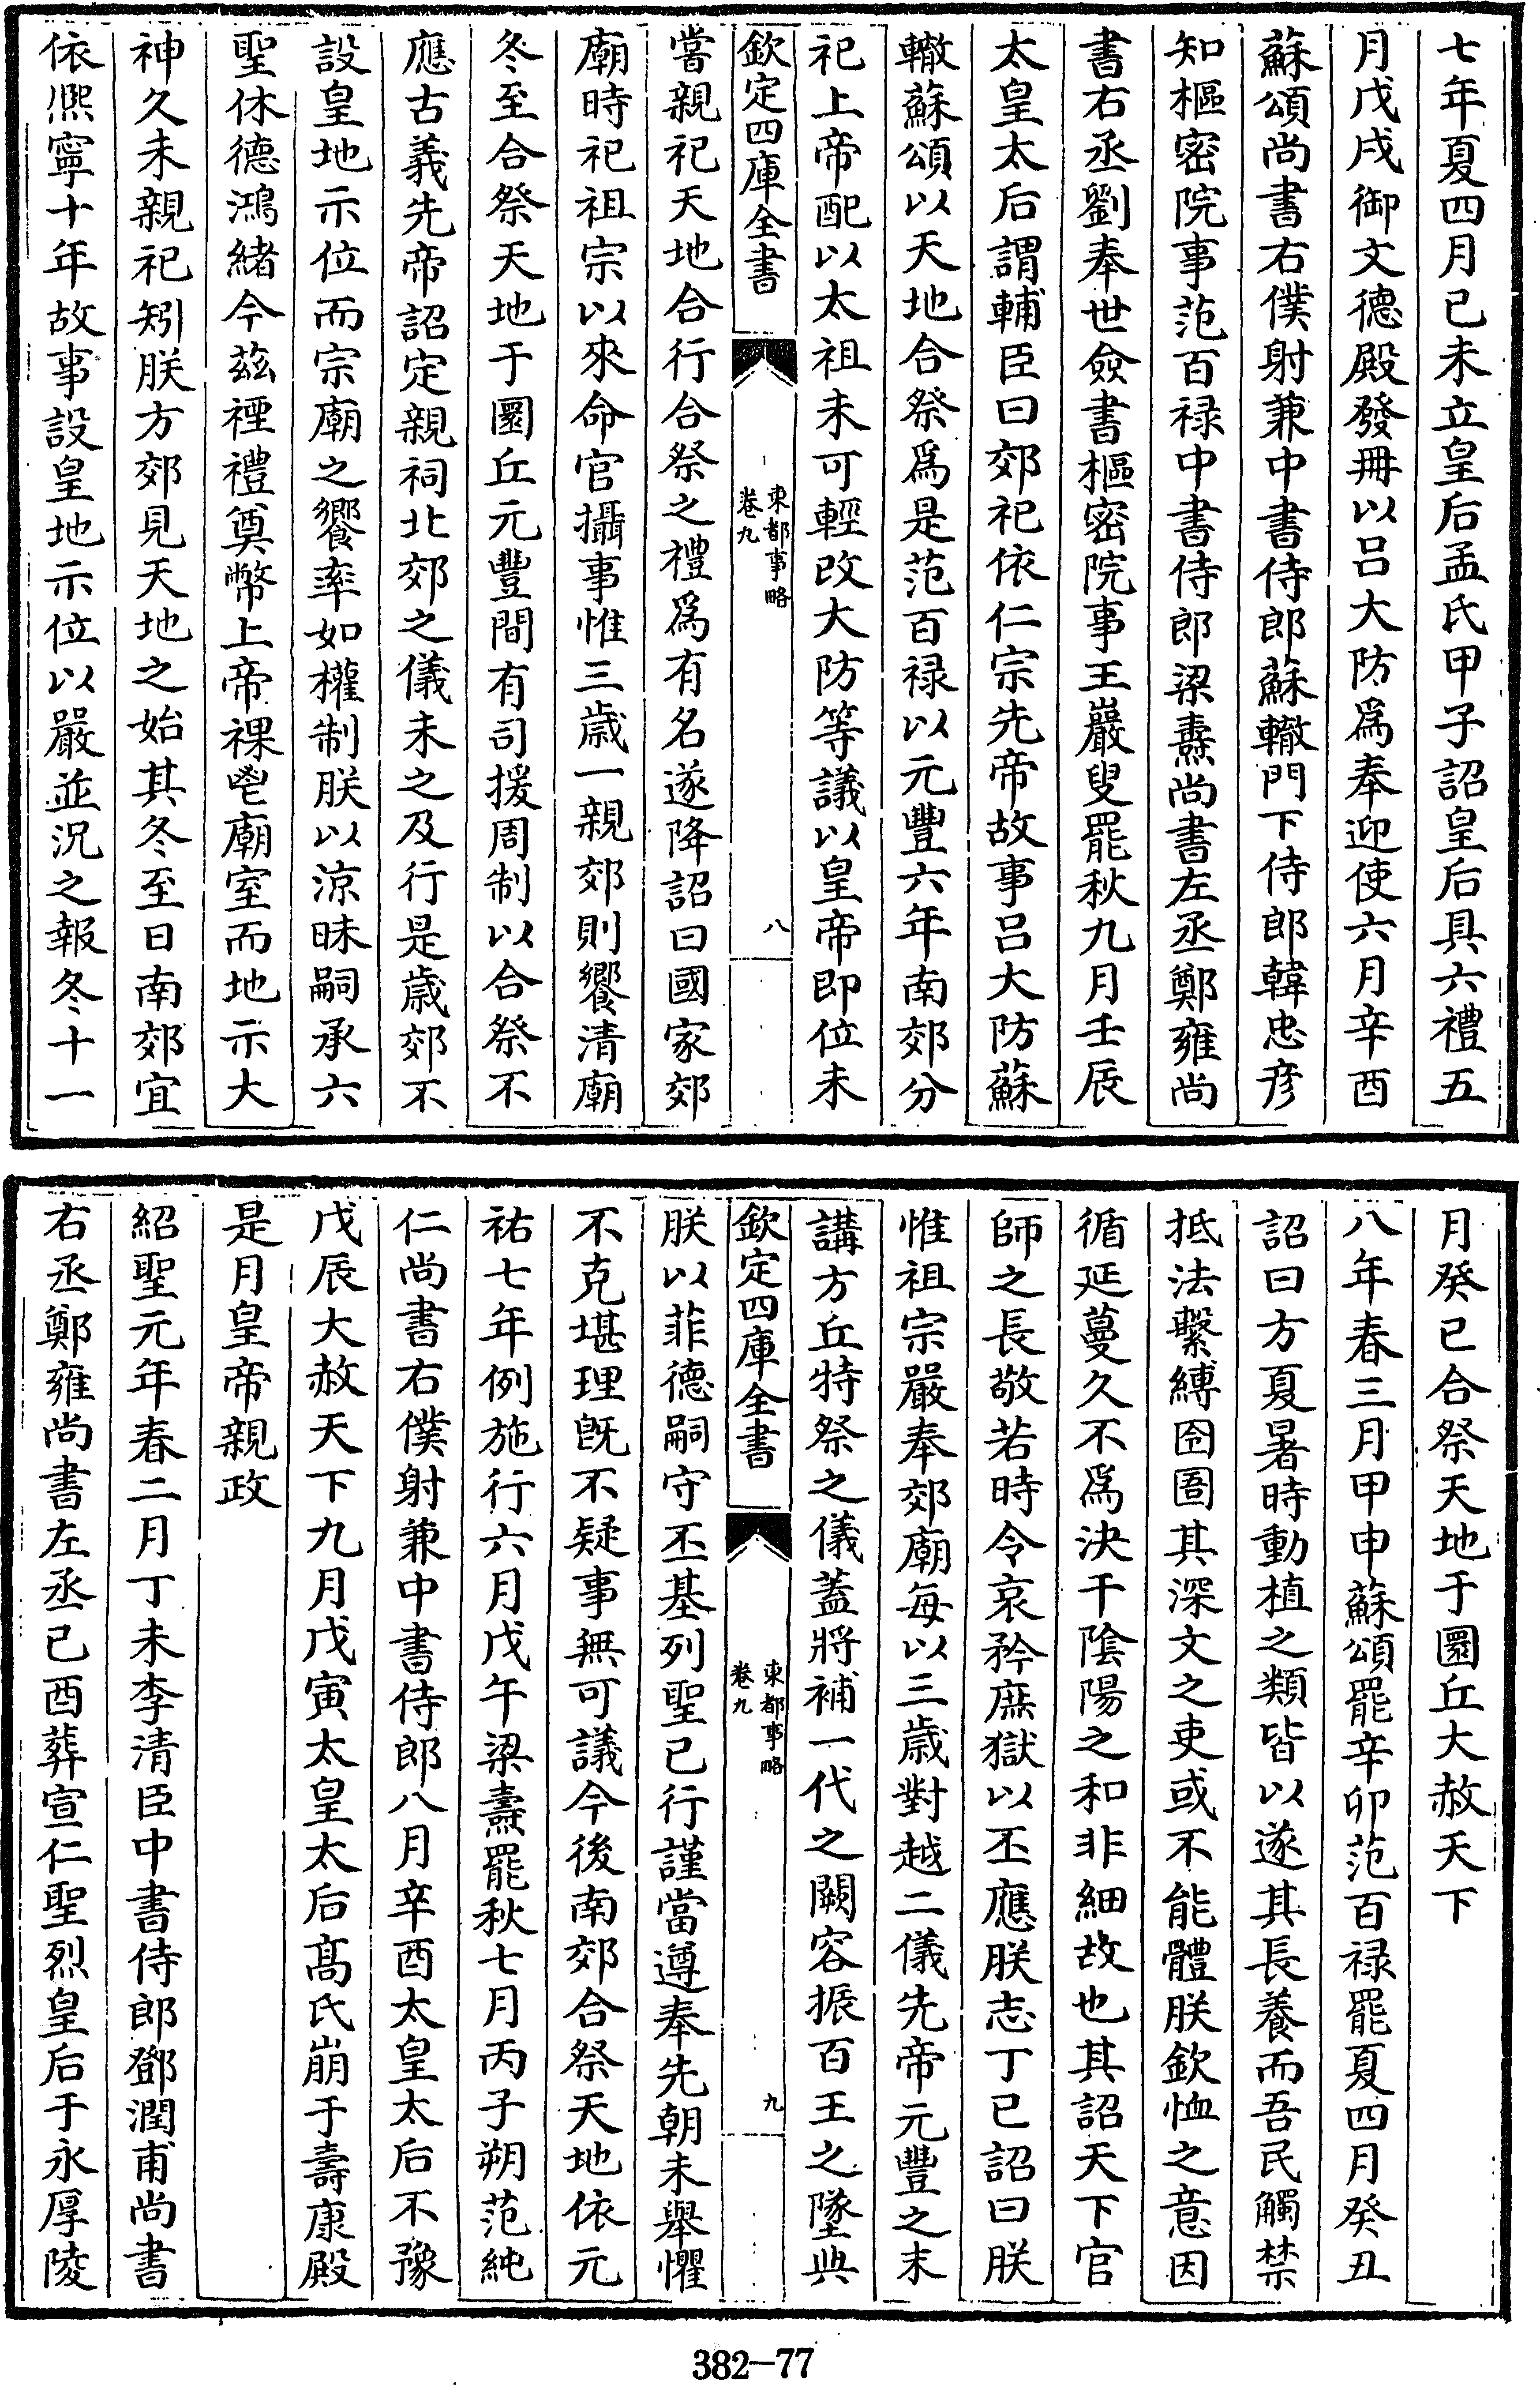 七年夏四月已未立皇后孟氏甲子詔皇后具六禮五
月戊戌御文德殿發冊以呂大防爲奉迎使六月辛酉
蘇頌尚書右僕射兼中書侍郎蘇轍門下侍郎韓忠彦
知樞密院事范百禄中書侍郎梁燾尚書左丞鄭雍尚
書右丞劉奉世僉書樞密院事王巖叟罷秋九月壬辰
太皇太后謂輔臣曰郊祀依仁宗先帝故事呂大防蘇
轍蘇頌以天地合祭爲是范百禄以元豐六年南郊分
祀上帝配以太祖未可輕改大防等議以皇帝即位未
欽定四庫全書
東都事略
卷九
八
嘗親祀天地合行合祭之禮爲有名遂降詔曰國家郊
廟時祀祖宗以來命官攝事惟三歲一親郊則饗清廟
冬至合祭天地于圜丘元豐間有司援周制以合祭不
應古義先帝詔定親祠北郊之儀未之及行是歲郊不
設皇地示位而宗廟之饗率如權制朕以涼昧嗣承六
聖休德鴻緒今兹禋禮奠幣上帝祼鬯廟室而地示大
神久未親祀矧朕方郊見天地之始其冬至日南郊宜
依熙寧十年故事設皇地示位以嚴並況之報冬十一
月癸已合祭天地于圜丘大赦天下
八年春三月甲申蘇頌罷辛卯范百禄罷夏四月癸丑
詔曰方夏暑時動植之類皆以遂其長養而吾民觸禁
抵法繫縛囹圄其深文之吏或不能體朕欽恤之意因
循延蔓久不爲決干陰陽之和非細故也其詔天下官
師之長敬若時令哀矜庶獄以丕應朕志丁已詔曰朕
惟祖宗嚴奉郊廟每以三歲對越二儀先帝元豐之末
講方丘特祭之儀蓋將補一代之闕容振百王之墜典
欽定四庫全書
東都事略
卷九
九
朕以菲德嗣守丕基列聖已行謹當遵奉先朝未舉懼
不克堪理旣不疑事無可議今後南郊合祭天地依元
祐七年例施行六月戊午梁燾罷秋七月丙子朔范純
仁尚書右僕射兼中書侍郎八月辛酉太皇太后不豫
戊辰大赦天下九月戊寅太皇太后髙氏崩于壽康殿
是月皇帝親政
紹聖元年春二月丁未李清臣中書侍郎鄧潤甫尚書
右丞鄭雍尚書左丞己酉葬宣仁聖烈皇后于永厚陵
382-77